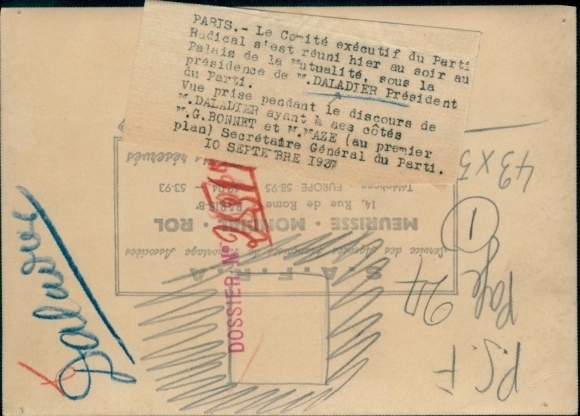 PARIS.- Le Comité exécutif du Parti
Radical s'est réuni hier au soir au
Palais de la Mutualité, sous la
présidence de M.DALADIER Président
du Parti.
Vue prise pendant le discours de
M.DALADIER ayant à ses côtés
M.G.BONNET et M.MAZE (au premier
plan) Secrétaire Général du Parti.
10 SEPTEMBRE 1937
réservés
Téléphone EUROPE 58-95
53-93
14, Rue de Rome PARIS-8e
MEURISSE - MONDIAL - ROL
Service des Agences
Reportage Associées
S.A.F.R.A
DOSSIER No
Daladier
43 x 3
1
Page 24
P.S.F